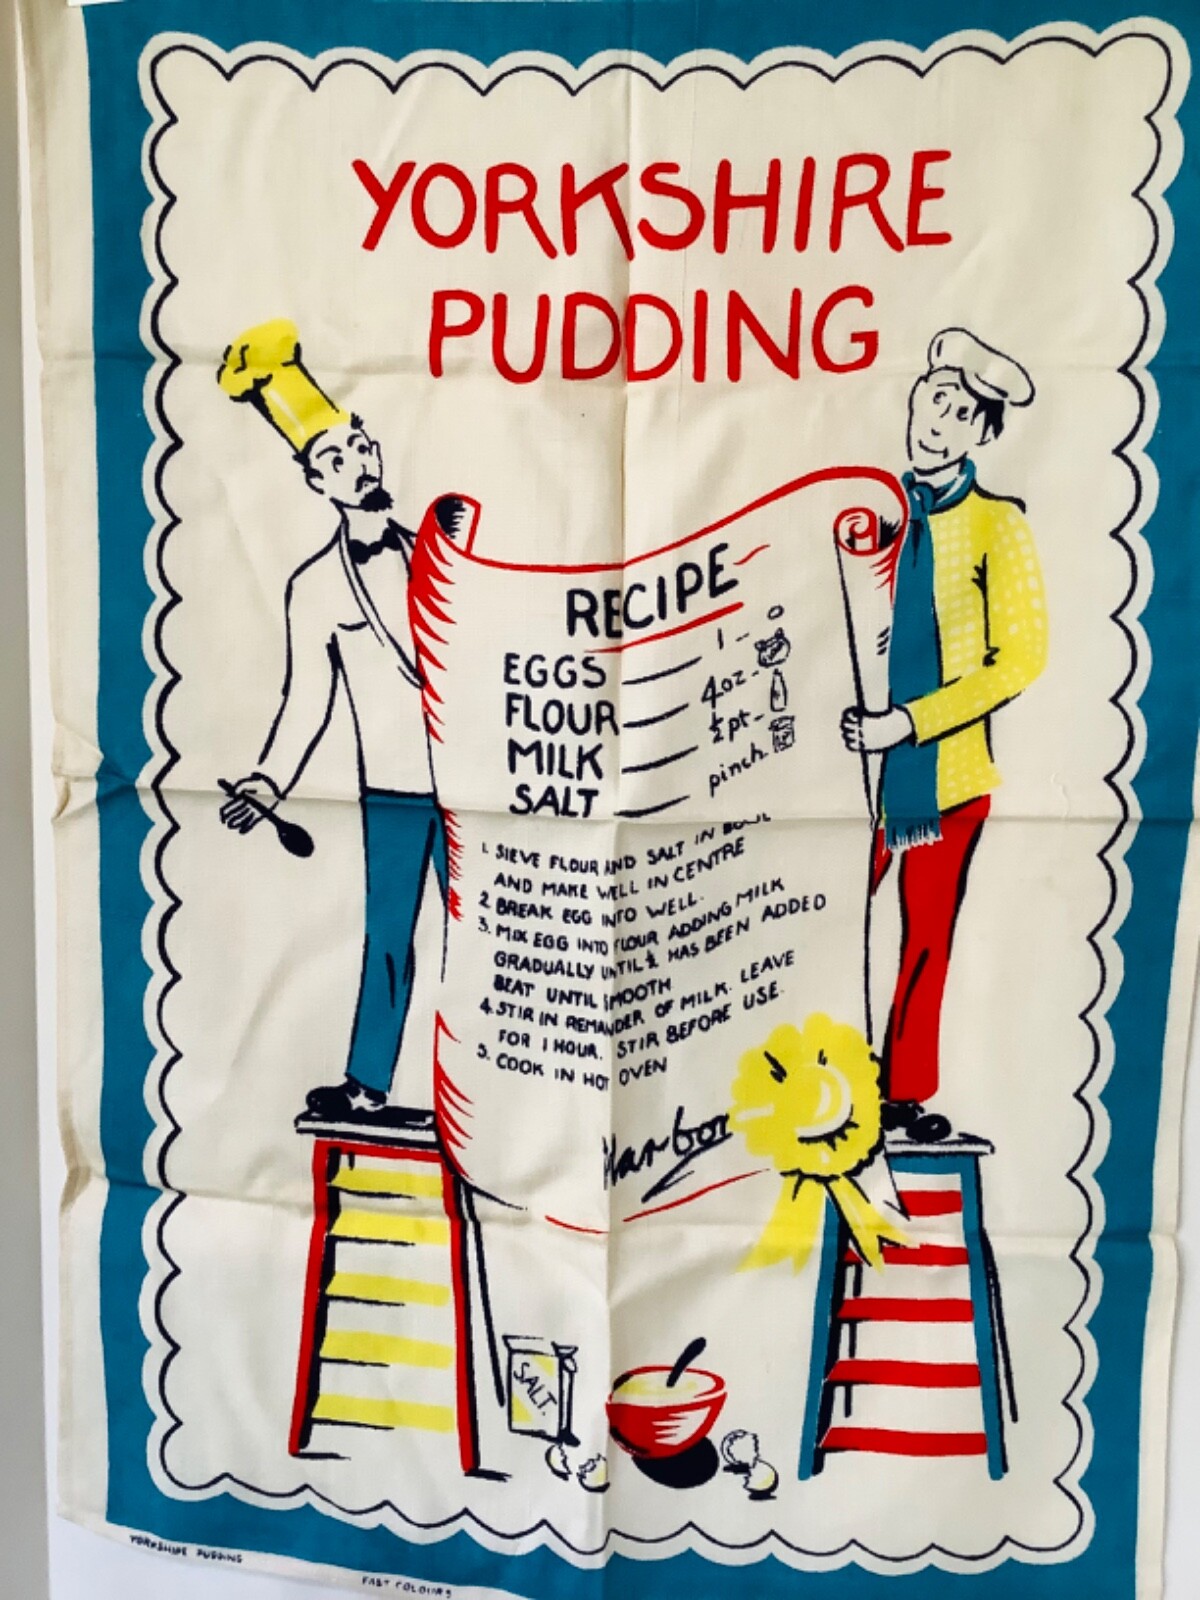 YORKSHIRE
PUDDING
RECIPE
EGGS 1
FLOUR 4oz
MILK ½pt
SALT pinch
1. SIEVE FLOUR AND SALT IN BOWL
AND MAKE WELL IN CENTRE
2. BREAK EGG INTO WELL.
3. MIX EGG INTO FLOUR ADDING MILK
GRADUALLY UNTIL ½ HAS BEEN ADDED
BEAT UNTIL SMOOTH
4. STIR IN REMAINDER OF MILK. LEAVE
FOR 1 HOUR. STIR BEFORE USE.
5. COOK IN HOT OVEN
Harbor
SALT.
YORKSHIRE PUDDING
FAST COLOURS